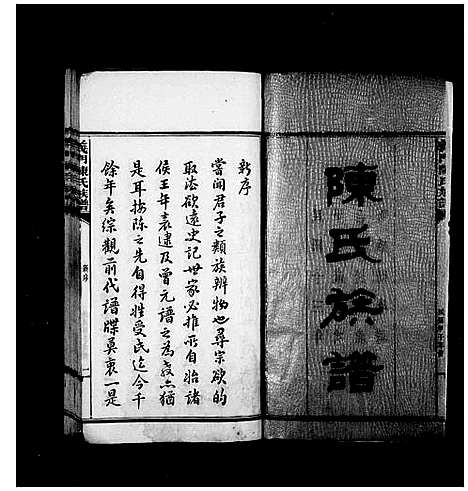 陳氏族譜
新序
嘗聞君子之類族辨物也尋宗欲的
取法欲遠史記世家必推所自始諸
侯王年表建及曾元譜之為義亦猶
是耳按陳之先自得姓受氏迄今千
餘年矣綜觀前代譜牒莫衷一是
義門陳氏族譜
新序
一